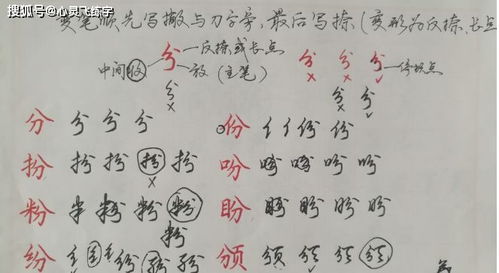 搜狐号@心灵飞练字
变笔顺先写撇与刀字旁,最后写捺(变形为反捺、长点
分 反捺或长点
中间收 放(主笔) 分 分 分 停顿点
分 分 分
分 分 分 分 分 份 亻 亻 份 份
扮 扮 扮 扮 扮 吩 吩 吩 吩 吩
粉 半 粉 粉 粉 盼 盼 盼 盼 盼
粉
纷 纷 纷 纷 颁 颁 颁 颁 颁